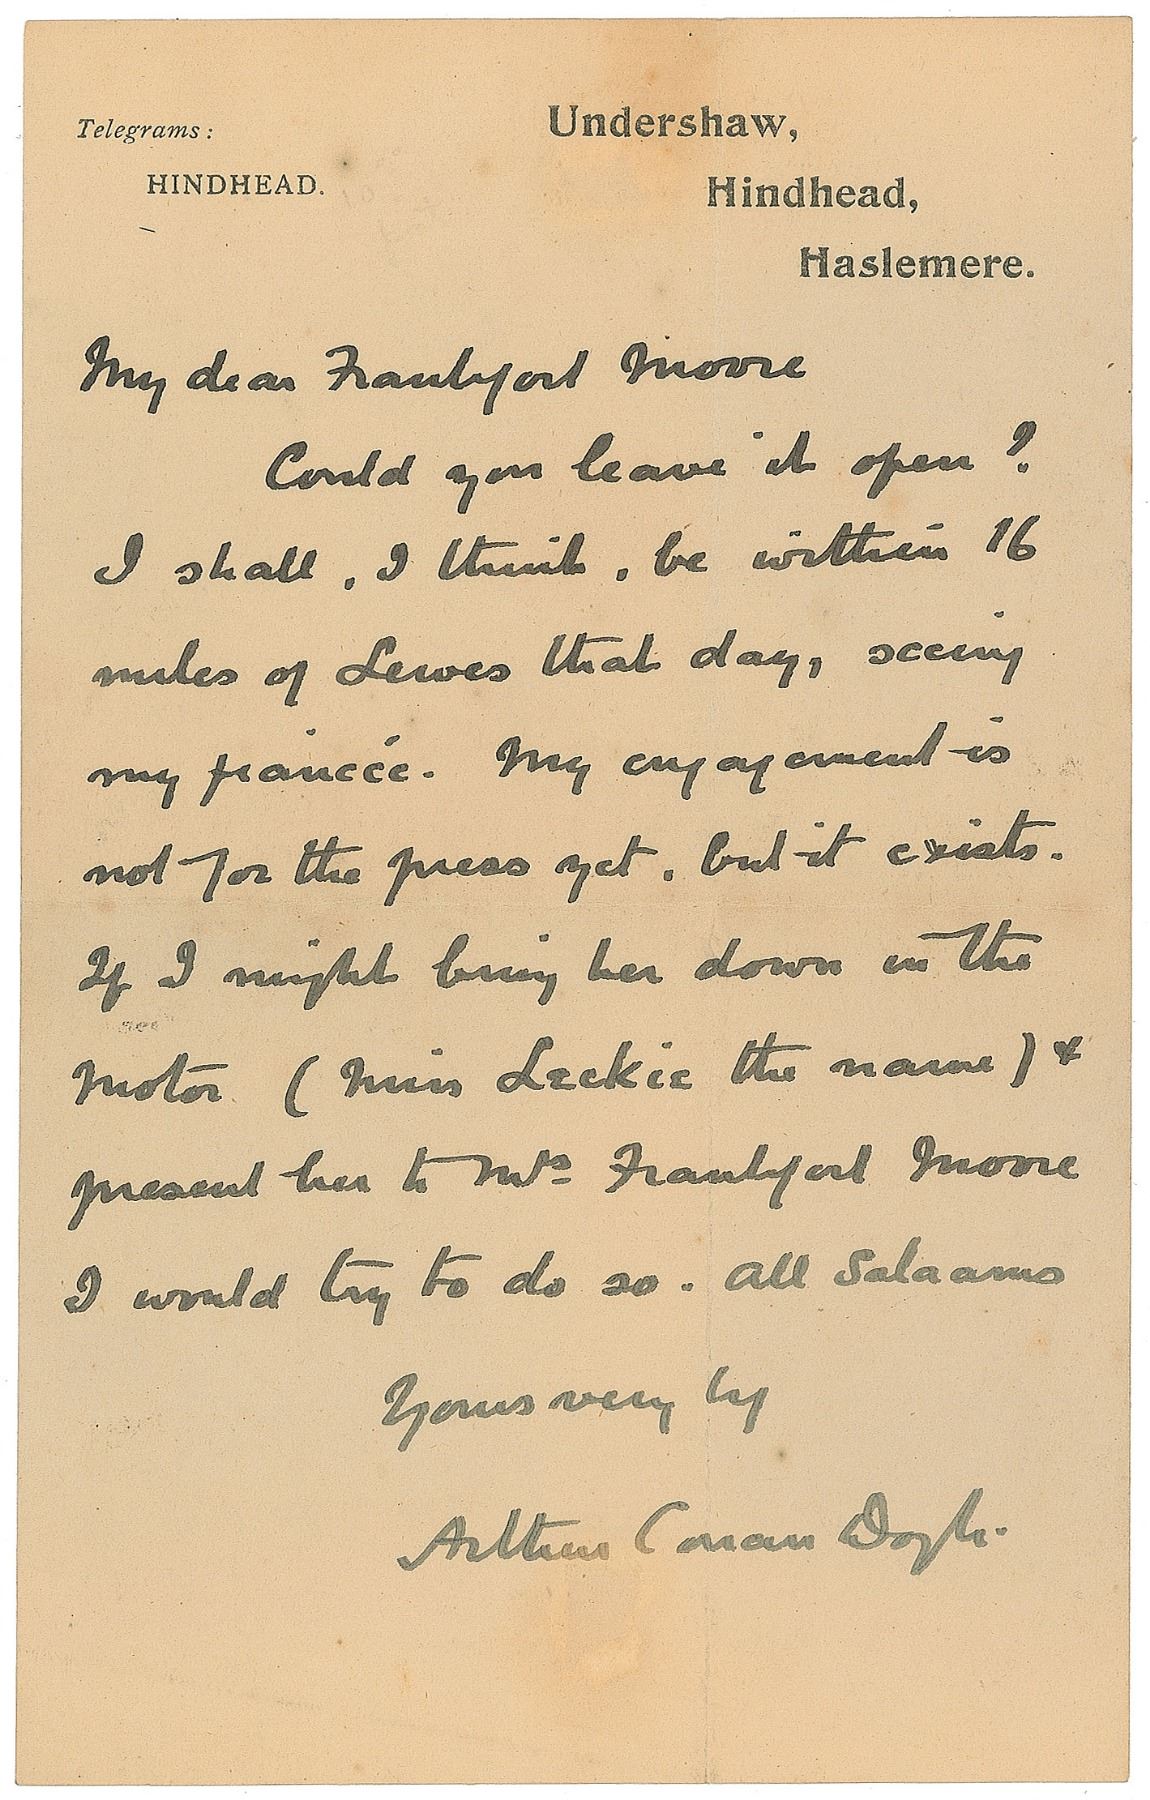 Telegrams:
HINDHEAD.
Undershaw,
Hindhead,
Haslemere.
My dear Frankfort Moore
Could you leave it open?
I shall, I think, be within 16
miles of Lewes that day, seeing
my fiancée. My engagement is
not for the press yet, but it exists.
If I might bring her down in the
motor (Miss Leckie the name) &
present her to Mrs Frankfort Moore
I would try to do so. All Salaams
Yours very
Arthur Conan Doyle.